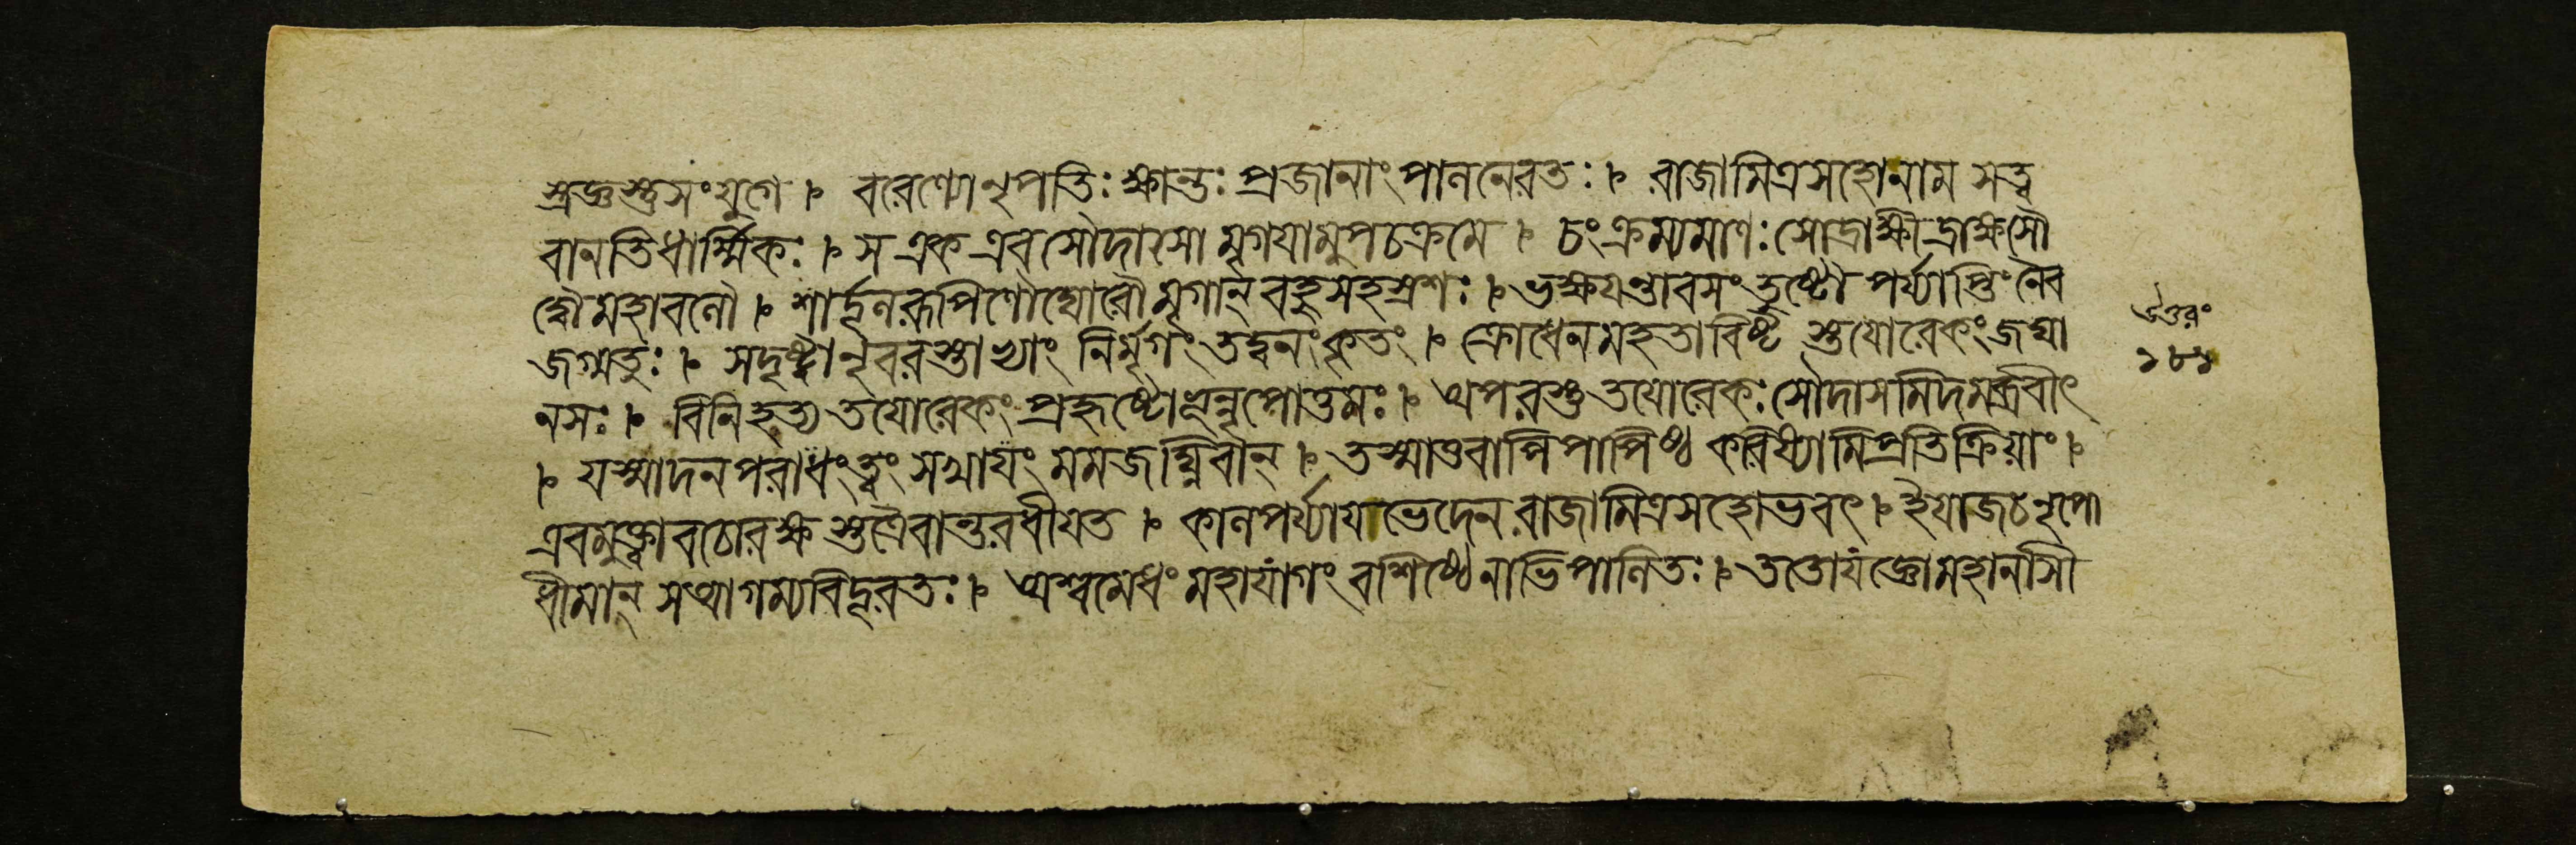 স্রজ্ঞস্তুসংযুগে ৷ বরেণ্যোনৃপতিঃক্ষান্তঃ প্রজানাং পালনেরতঃ ৷ রাজামিত্রসহোনাম সত্ত্ব
বানতিধার্ম্মিকঃ ৷ স এক এব সৌদাসো মৃগযামুপচক্রমে ৷ চংক্রম্যমাণঃ সোদ্রাক্ষীদ্রাক্ষসৌ
দ্বৌমহাবলৌ ৷ শার্দ্দূলরূপিণৌঘোরৌ মৃগান্ বহুসহস্রশঃ ৷ ভক্ষযন্তাবসংতুষ্টৌ পর্য্যাপ্তিংনৈব
জগ্মতুঃ ৷ সদৃষ্ট্বানৃবরস্তাভ্যাং নির্মৃগং তদ্বনংকৃতং ৷ ক্রোধেনমহতাবিষ্ট স্তযোরেকংজঘা
নসঃ ৷ বিনিহত্য তযোরেকং প্রহৃষ্টোভূন্নৃপোত্তমঃ ৷ অপরস্তু তযোরেকঃ সৌদাসমিদমব্রবীৎ
৷ যস্মাদনপরাধংত্বং সখাযং মমজঘ্নিবান্ ৷ তস্মাত্তবাপিপাপিষ্ঠ করিষ্যামিপ্রতিক্রিয়াং ৷
এবমুক্ত্বাবচোরক্ষ স্তত্রৈবান্তরধীযত ৷ কালপর্য্যাযভেদেন রাজামিত্রসহোভবৎ ৷ ইযাজচনৃপো
ধীমান্ সখ্যাগম্যবিদূরতঃ ৷ অশ্বমেধং মহাযাগং বশিষ্ঠেনাভিপালিতঃ ৷ ততোযজ্ঞোমহানাসী
উত্তরং